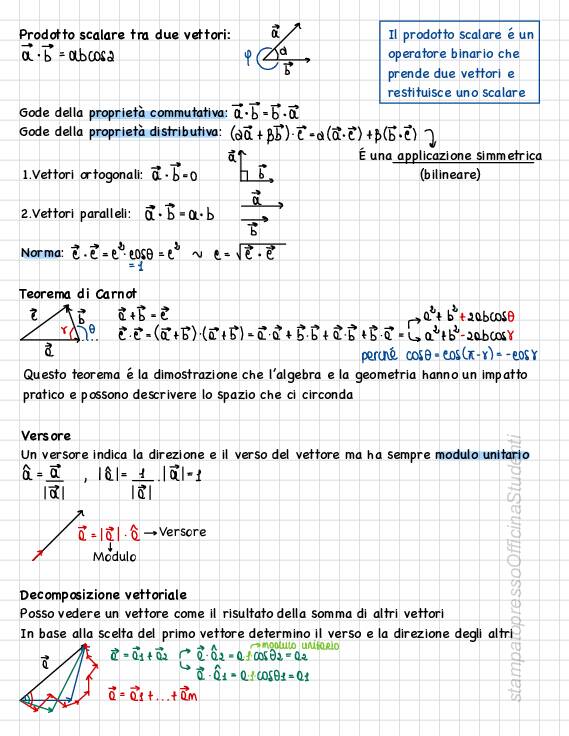 Prodotto scalare tra due vettori:
a⃗ · b⃗ = abcosα
a⃗
α
φ
b⃗
Il prodotto scalare é un
operatore binario che
prende due vettori e
restituisce uno scalare
Gode della proprietà commutativa: a⃗ · b⃗ = b⃗ · a⃗
Gode della proprietà distributiva: (αa⃗ + βb⃗) · c⃗ = α(a⃗ · c⃗) + β(b⃗ · c⃗)
É una applicazione simmetrica
(bilineare)
1.Vettori ortogonali: a⃗ · b⃗ = 0
a⃗
b⃗
2.Vettori paralleli: a⃗ · b⃗ = a · b
a⃗
b⃗
Norma: c⃗ · c⃗ = c² · cosθ = c² ~ c = √c⃗ · c⃗
=1
Teorema di Carnot
c⃗
b⃗
γ
θ
a⃗
a⃗ + b⃗ = c⃗
c⃗ · c⃗ = (a⃗ + b⃗) · (a⃗ + b⃗) = a⃗ · a⃗ + b⃗ · b⃗ + a⃗ · b⃗ + b⃗ · a⃗ =
a² + b² + 2abcosθ
a² + b² - 2abcosγ
perché cosθ = cos(π-γ) = -cosγ
Questo teorema é la dimostrazione che l'algebra e la geometria hanno un impatto
pratico e possono descrivere lo spazio che ci circonda
Versore
Un versore indica la direzione e il verso del vettore ma ha sempre modulo unitario
â = a⃗/|a⃗| , |â| = 1/|a⃗| · |a⃗| = 1
a⃗ = |a⃗| · â → Versore
Modulo
Decomposizione vettoriale
Posso vedere un vettore come il risultato della somma di altri vettori
In base alla scelta del primo vettore determino il verso e la direzione degli altri
modulo unitario
a⃗
a⃗ = a⃗1 + a⃗2
a⃗ · â2 = a·1·cosθ2 = a2
a⃗ · â1 = a·1·cosθ1 = a1
a⃗ = a⃗1 + ... + a⃗m
stampatopressoOfficinaStudenti